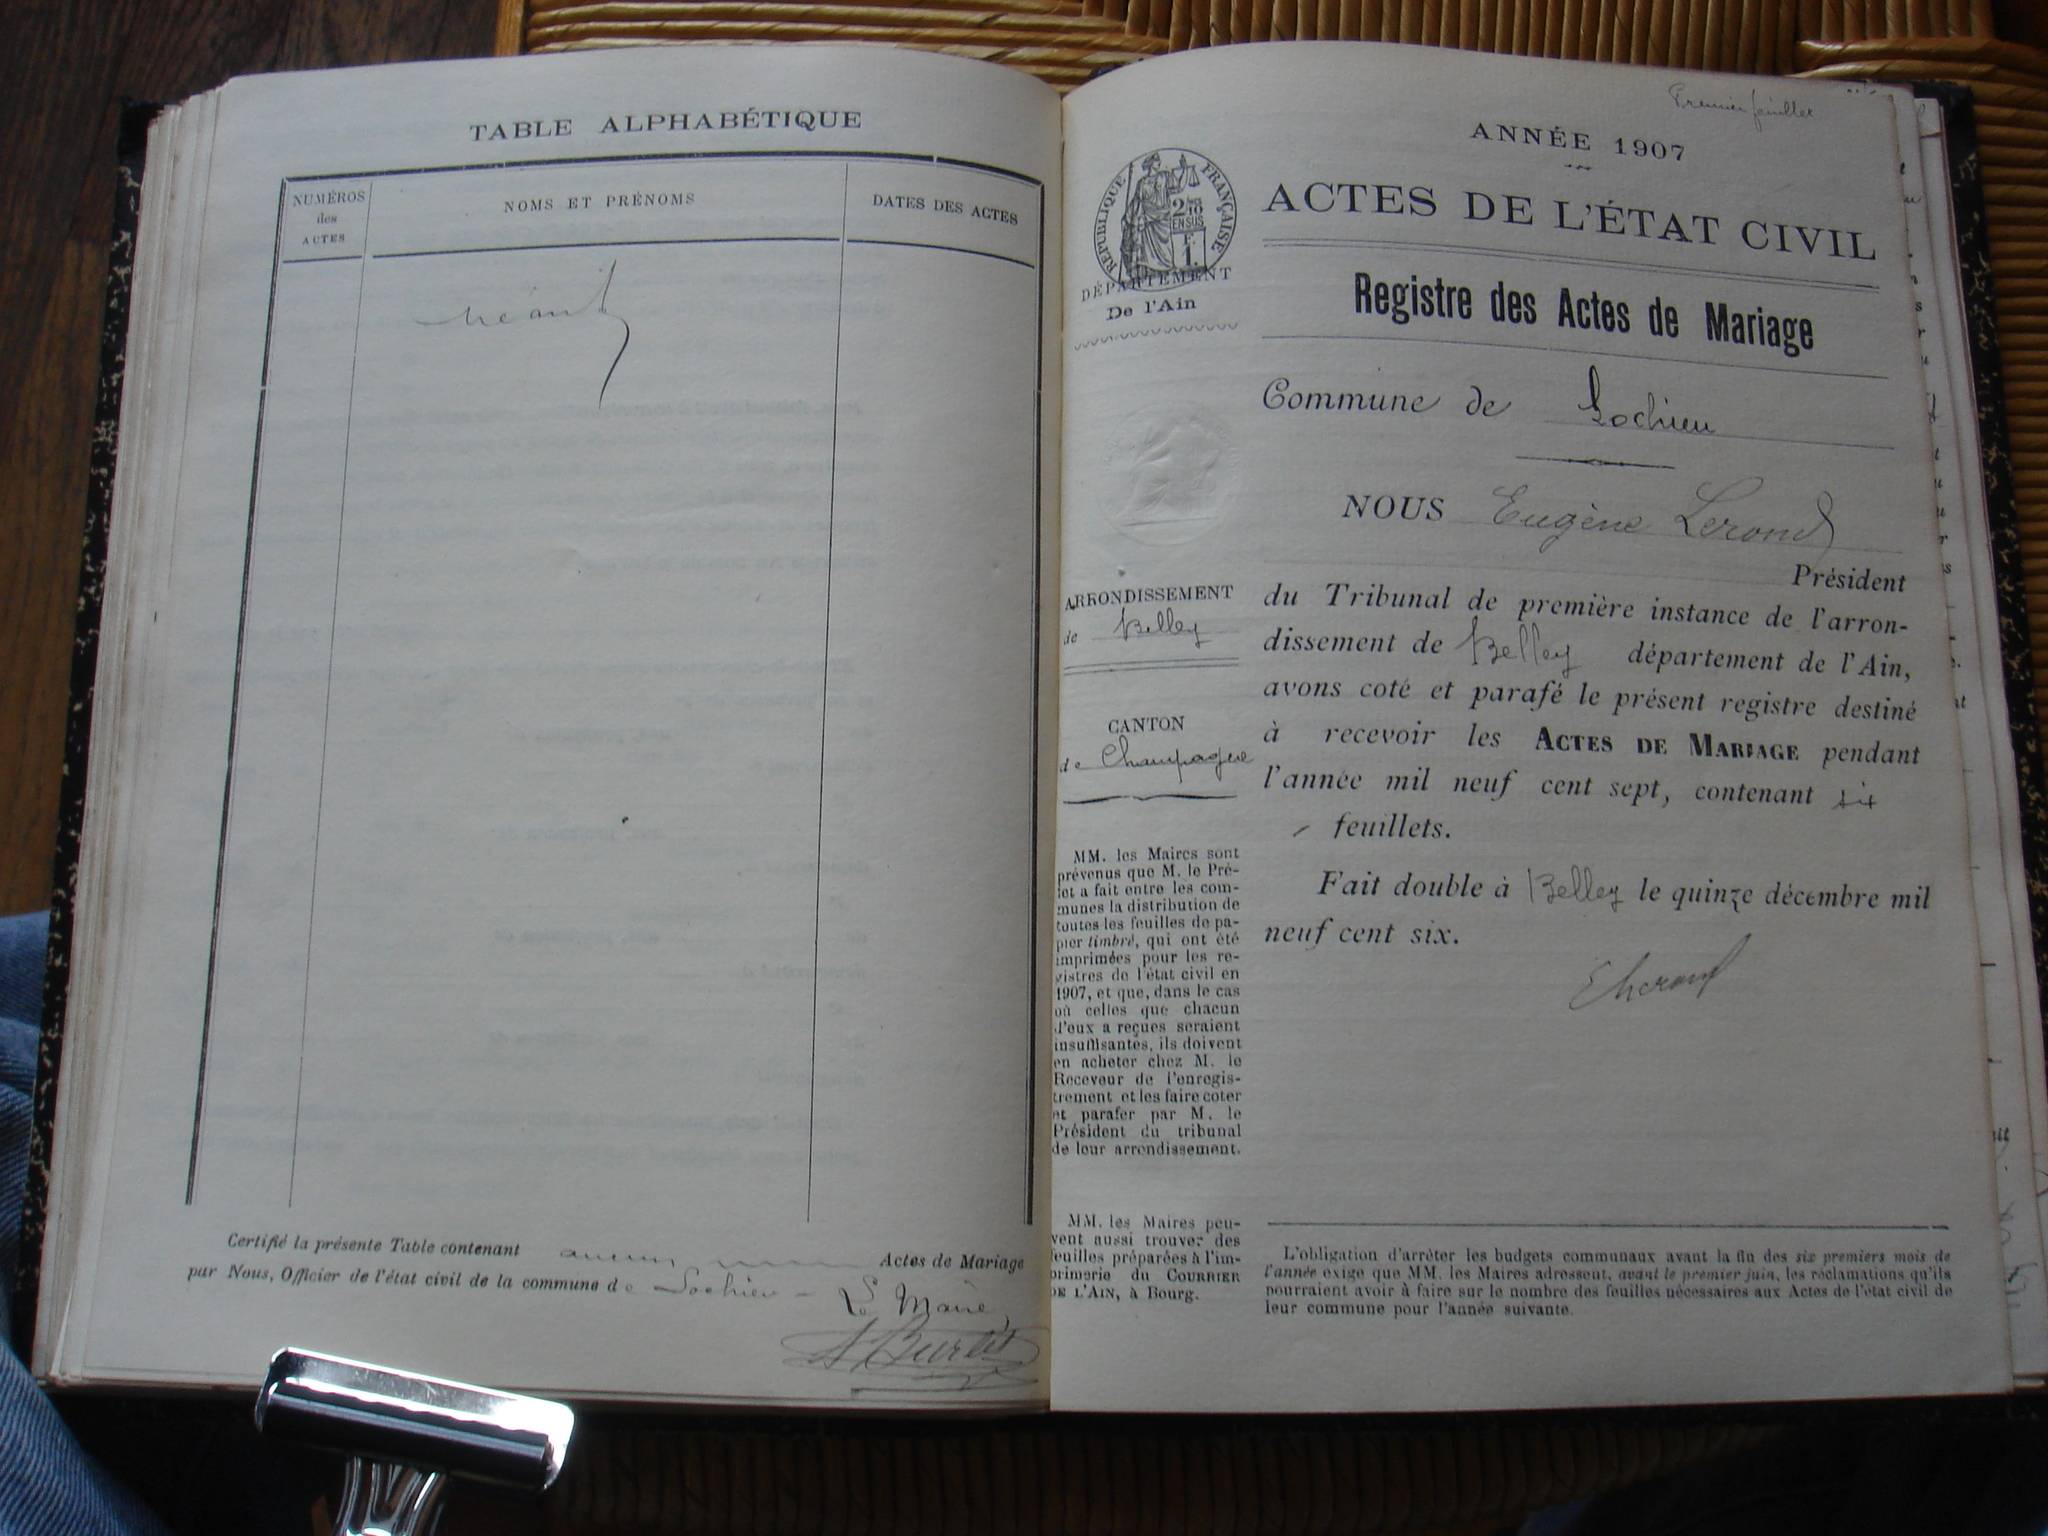 TABLE ALPHABÉTIQUE
NUMÉROS
des
ACTES
NOMS ET PRÉNOMS
DATES DES ACTES
Néant
Certifié la présente Table contenant aucun Actes de Mariage
par Nous, Officier de l'état civil de la commune de Lochieu
Le Maire,
Burlet
Premier feuillet
ANNÉE 1907
ACTES DE L'ÉTAT CIVIL
RÉPUBLIQUE FRANÇAISE
2/10
EN SUS
F.
1.
DÉPARTEMENT
De l'Ain
Registre des Actes de Mariage
Commune de Lochieu
NOUS Eugène Lerond
Président
du Tribunal de première instance de l'arron-
dissement de Belley département de l'Ain,
avons coté et parafé le présent registre destiné
à recevoir les ACTES DE MARIAGE pendant
l'année mil neuf cent sept, contenant six
feuillets.
Fait double à Belley le quinze décembre mil
neuf cent six.
ELerond
ARRONDISSEMENT
de Belley
CANTON
de Champagne
MM. les Maires sont
prévenus que M. le Pré-
fet a fait entre les com-
munes la distribution de
toutes les feuilles de pa-
pier timbré, qui ont été
imprimées pour les re-
gistres de l'état civil en
1907, et que, dans le cas
où celles que chacun
d'eux a reçues seraient
insuffisantes, ils doivent
en acheter chez M. le
Receveur de l'enregis-
trement et les faire coter
et parafer par M. le
Président du tribunal
de leur arrondissement.
MM. les Maires peu-
vent aussi trouver des
feuilles préparées à l'im-
primerie du COURRIER
DE L'AIN, à Bourg.
L'obligation d'arrêter les budgets communaux avant la fin des six premiers mois de
l'année exige que MM. les Maires adressent, avant le premier juin, les réclamations qu'ils
pourraient avoir à faire sur le nombre des feuilles nécessaires aux Actes de l'état civil de
leur commune pour l'année suivante.